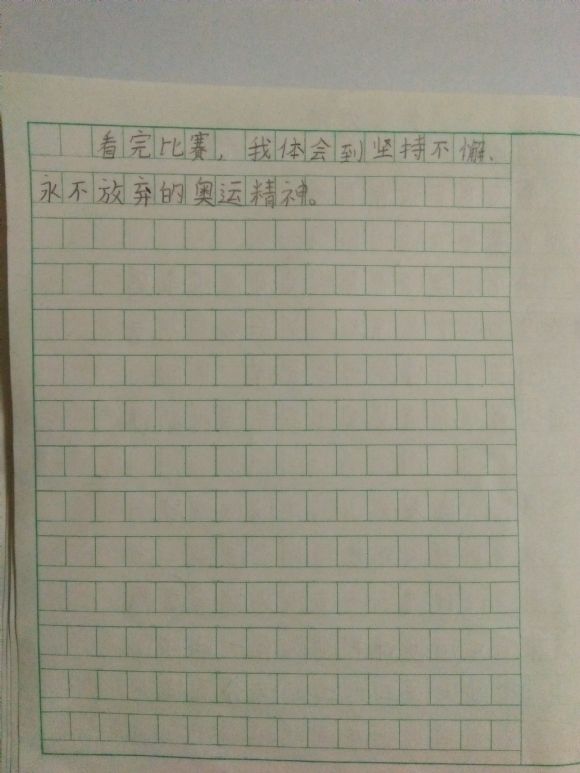 看完比赛，我体会到坚持不懈、
永不放弃的奥运精神。